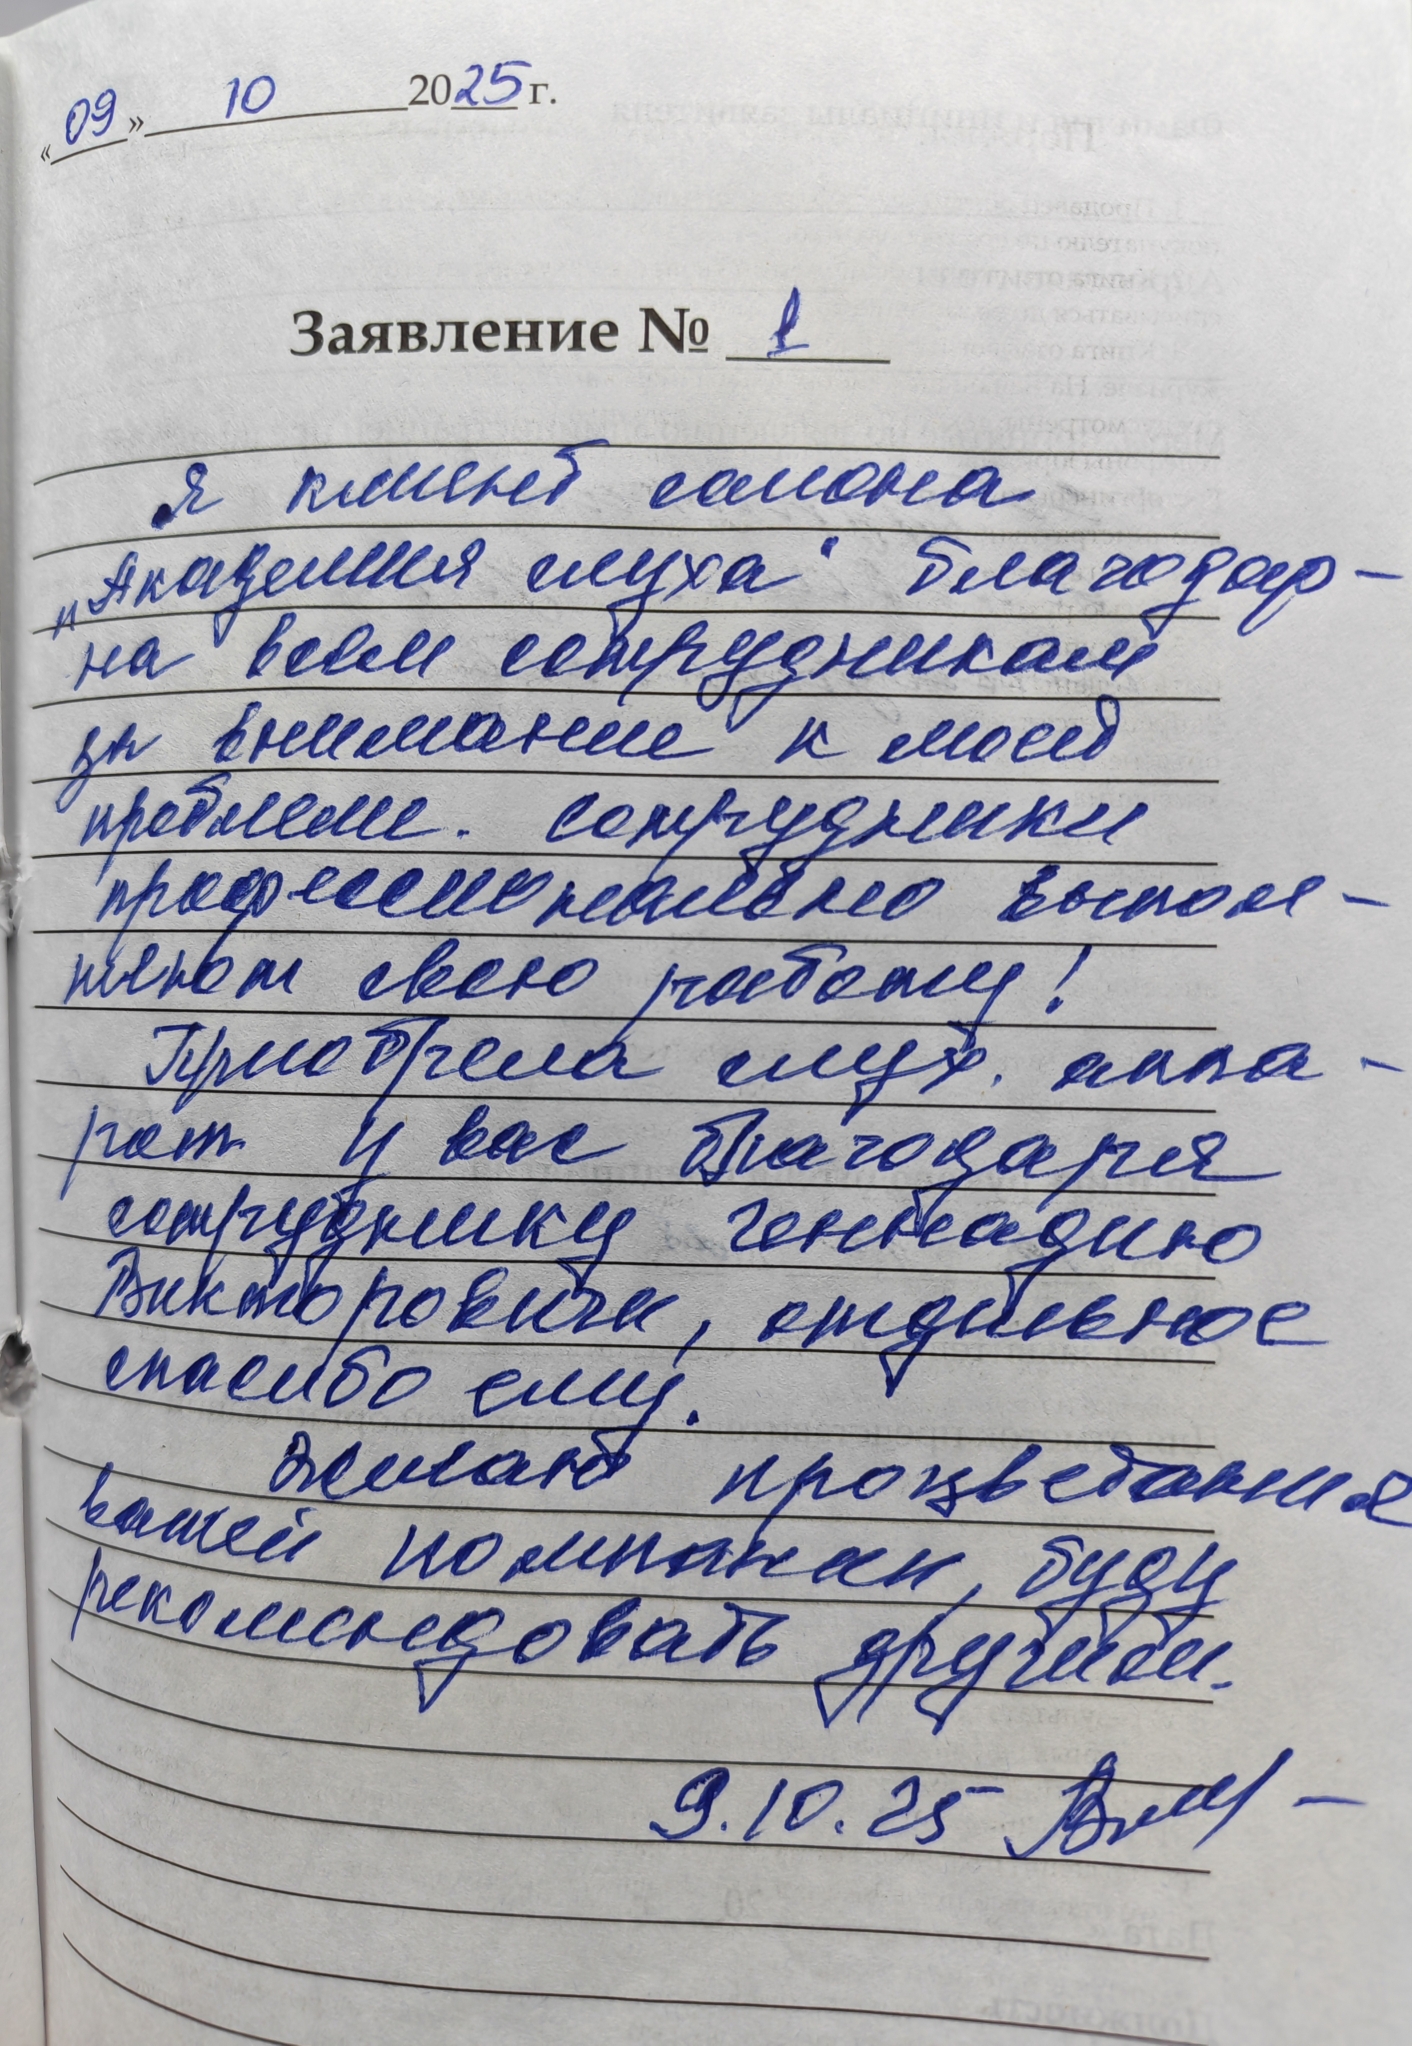 «09» 10 2025 г.
Заявление № 1
Я клиент салона
"Академия слуха" благодар-
на всем сотрудникам
за внимание к моей
проблеме. Сотрудники
профессионально выпол-
няют свою работу!
Приобрела слух. аппа-
рат у вас благодаря
сотруднику Геннадию
Викторовичу, отдельное
спасибо ему.
Желаю процветания
вашей компании, буду
рекомендовать другим.
9.10.25